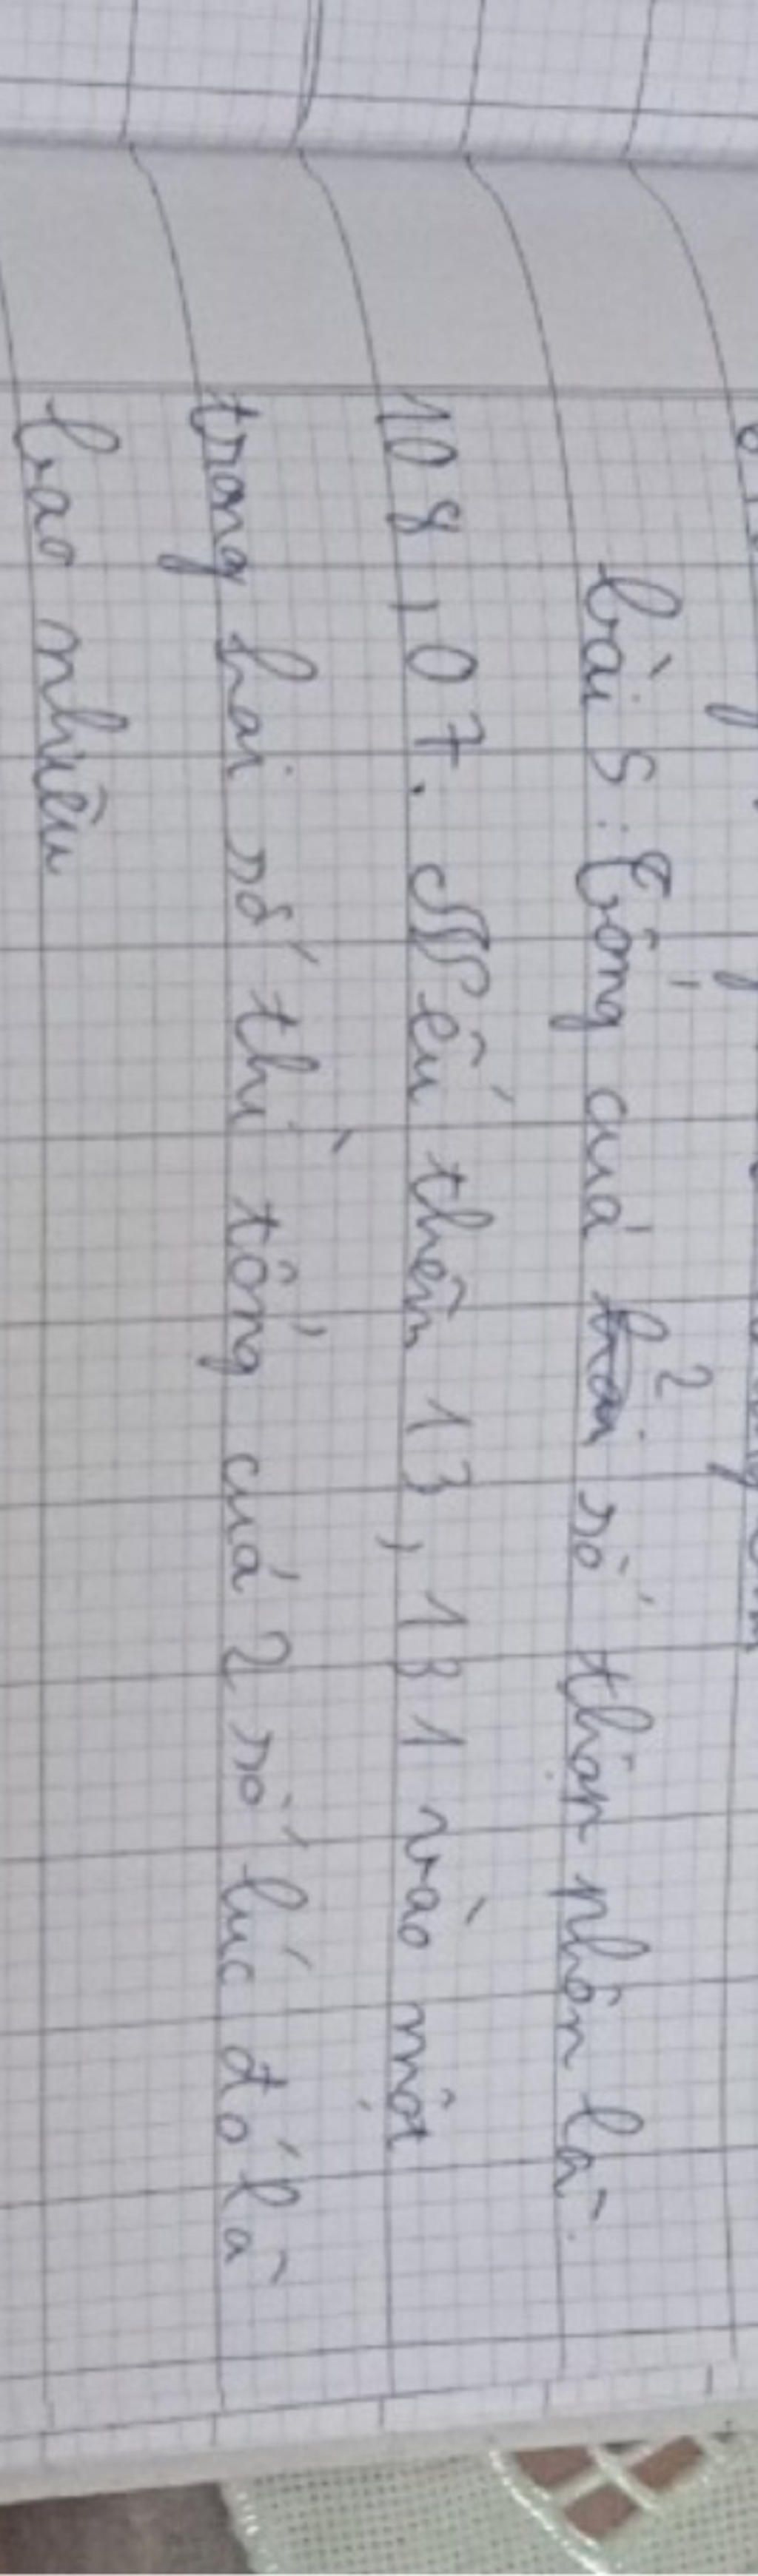 bài 5: Tổng của 2 số thập phân là
108,07. Nếu thêm 13,131 vào một
trong hai số thì tổng của 2 số lúc đó là
bao nhiêu